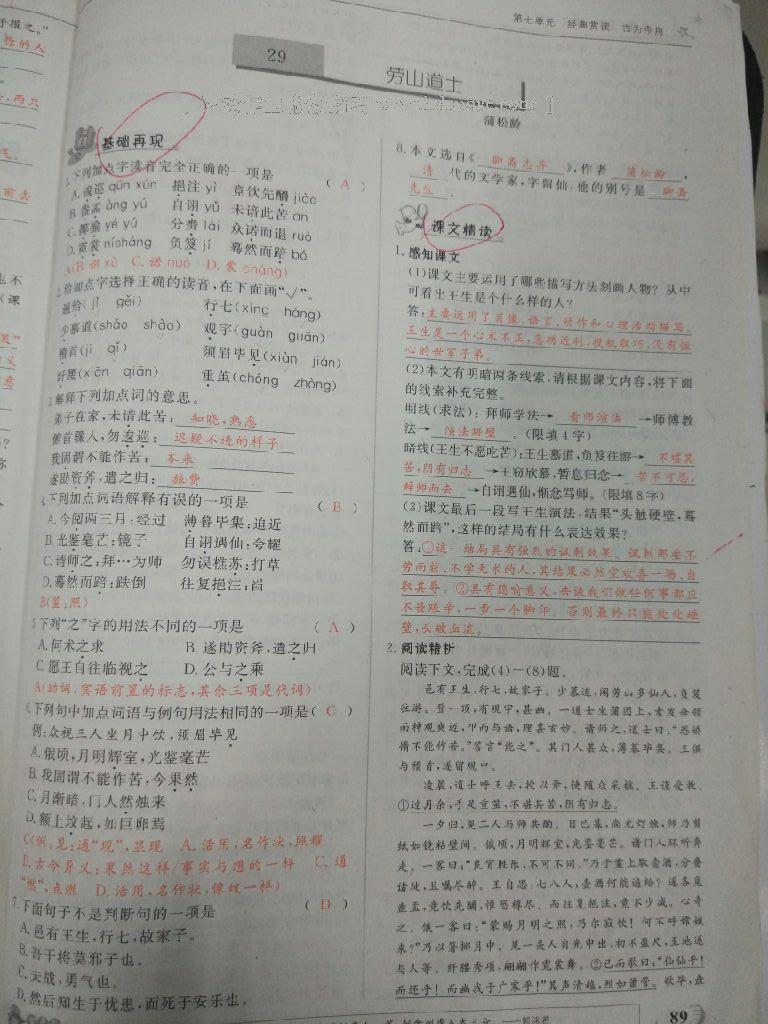 第七单元 经典赏读 古为今用
29
劳山道士
蒲松龄
基础再现
1.下列加点字读音完全正确的一项是 ( A )
A.逡巡 qūn xún 挹注 yì 竟饮先釂 jiào
B.盎盂 àng yú 自诩 yǔ 未谙此苦 ān
C.揶揄 yé yú 分赉 lài 众诺而退 ruò
D.霓裳 nísháng 负笈 jí 蓦然而踣 bó
A(B.诩 xǔ C.诺 nuò D.裳 cháng)
2.给加点字选择正确的读音,在下面画“√”。
遍给(jǐ gěi) 行七(xíng háng)
少慕道(shào shǎo) 观宇(guàn guān)
稽首(jī qǐ) 须眉毕见(xiùn jiàn)
纤腰(xiān qiān) 重茧(chóng zhòng)
3.解释下列加点词的意思。
弟子在家,未谙此苦: 知晓,熟悉
俯首骤入,勿逡巡: 迟疑不进的样子
我固谓不能作苦: 本来
遂助资斧,遣之归: 旅费
4.下列加点词语解释有误的一项是 ( B )
A.今阅两三月:经过 薄暮毕集:迫近
B.光鉴毫芒:镜子 自诩遇仙:夸耀
C.请师之:拜…为师 勿误樵苏:打草
D.蓦然而踣:跌倒 往复挹注:舀
B(鉴:照)
5.下列“之”字的用法不同的一项是 ( A )
A.何术之求 B.遂助资斧,遣之归
C.愿王自往临视之 D.公与之乘
A(助词,宾语前置的标志,其余三项是代词)
6.下列句中加点词语与例句用法相同的一项是( C )
例:众视三人坐月中饮,须眉毕见
A.俄顷,月明辉室,光鉴毫芒
B.我固谓不能作苦,今果然
C.月渐暗,门人然烛来
D.额上坟起,如巨卵焉
C(例:见:通“现”,显现 A.活用,名作状,照耀
B.古今异义:果然这样/事实与想的一样 C.通
“燃”,点燃 D.活用,名作状,像坟一样)
7.下面句子不是判断句的一项是 ( D )
A.邑有王生,行七,故家子。
B.吾干将莫邪子也.
C.夫战,勇气也。
D.然后知生于忧患,而死于安乐也。
8.本文选自《 聊斋志异 》,作者 蒲松龄 ,
清 代的文学家,字留仙,他的别号是 聊斋
先生 .
课文精读
1.感知课文
(1)课文主要运用了哪些描写方法刻画人物?从中
可看出王生是个什么样的人?
答:主要运用了肖像、语言、动作和心理活动描写。
王生是一个心术不正,急功近利,投机取巧,没有恒
心的世家子弟。
(2)本文有明暗两条线索,请根据课文内容,将下面
的线索补充完整。
明线(求法):拜师学法→ 看师演法 →师傅教
法→ 演法碰壁 。(限填4字)
暗线(王生不愿吃苦):王生慕道,负笈往游→ 不堪其
苦,阴有归志 →王窃欣慕,暂息归念→ 苦不可忍,
辞师而去 →自诩遇仙,惭忿骂师。(限填8字)
(3)课文最后一段写王生演法,结果“头触硬壁,蓦
然而踣”,这样的结局有什么表达效果?
答:①这一结局具有强烈的讽刺效果。讽刺那些不
劳而获、不学无术的人,其结果必然空欢喜一场,自
取其辱。②具有隐喻意义,告诫我们做任何事都应
不畏艰辛,一步一个脚印,否则最终只能处处碰
壁,头破血流。
2.阅读精析
阅读下文,完成(4)-(8)题.
邑有王生,行七,故家子。少慕道,闻劳山多仙人,负笈
往游。登一顶,有观宇,甚幽。一道士坐蒲团上,素发垂领
而神观爽迈,叩而与语,理甚玄妙。请师之,道士曰:“恐娇
惰不能作苦。”答言“能之”。其门人甚众,薄暮毕集。王俱
与稽首,遂留观中。
凌晨,道士呼王去,授以斧,使随众采樵。王谨受教。
①过月余,手足重茧,不堪其苦,阴有归志。
一夕归,见二人与师共酌,日已暮,尚无灯烛,师乃剪
纸如镜粘壁间。俄顷,月明辉室,光鉴毫芒。诸门人环听奔
走,一客曰:“良宵胜乐,不可不同。”乃于案上取壶酒,分赉
诸徒,且嘱尽醉。王自思:七八人,壶酒何能遍给?遂各觅
盎盂,竞饮先釂,惟恐樽尽。而往复挹注,竟不少减。心奇
之。俄一客曰:“蒙赐月明之照,乃尔寂饮!何不呼嫦娥
来?”乃以箸掷月中。见一美人自光中出,初不盈尺,至地遂
与人等。纤腰秀项,翩翩作霓裳舞。②已而歌曰:“仙仙乎!
而还乎!而幽我于广寒乎!”其声清越,烈如箫管。歌毕,盘
89